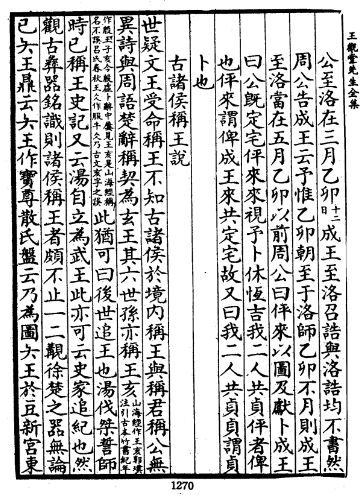 王觀堂先生全集
公至洛在三月乙卯十二日成王至洛召誥與洛誥均不書然
周公告成王云予惟乙卯朝至于洛師乙卯不月則成王
至洛當在五月乙卯以前周公曰伻來以圖及獻卜成王
曰公既定宅伻來來視予卜休恆吉我二人共貞伻者俾
也伻來謂俾成王來共定宅故又曰我二人共貞貞謂貞
卜也
古諸侯稱王說
世疑文王受命稱王不知古諸侯於境內稱王與稱君稱公無
異詩與周語楚辭稱契為玄王其六世孫亦稱王亥山海經作王亥郭璞注引古本竹書紀年
作殷王子亥今殷虛卜辭中屢見王亥是山海經稱名不誤呂氏春秋王冰作服牛乃古文亥字之誤此猶可曰後世追王也湯伐桀誓師
時已稱王史記又云湯自立為武王此亦可云史家追紀也然
觀古彝器銘識則諸侯稱王者頗不止一二觀徐楚之器無論
已夨王鼎云夨王作寶尊散氏盤云乃為圖夨王於豆新宮東
1270